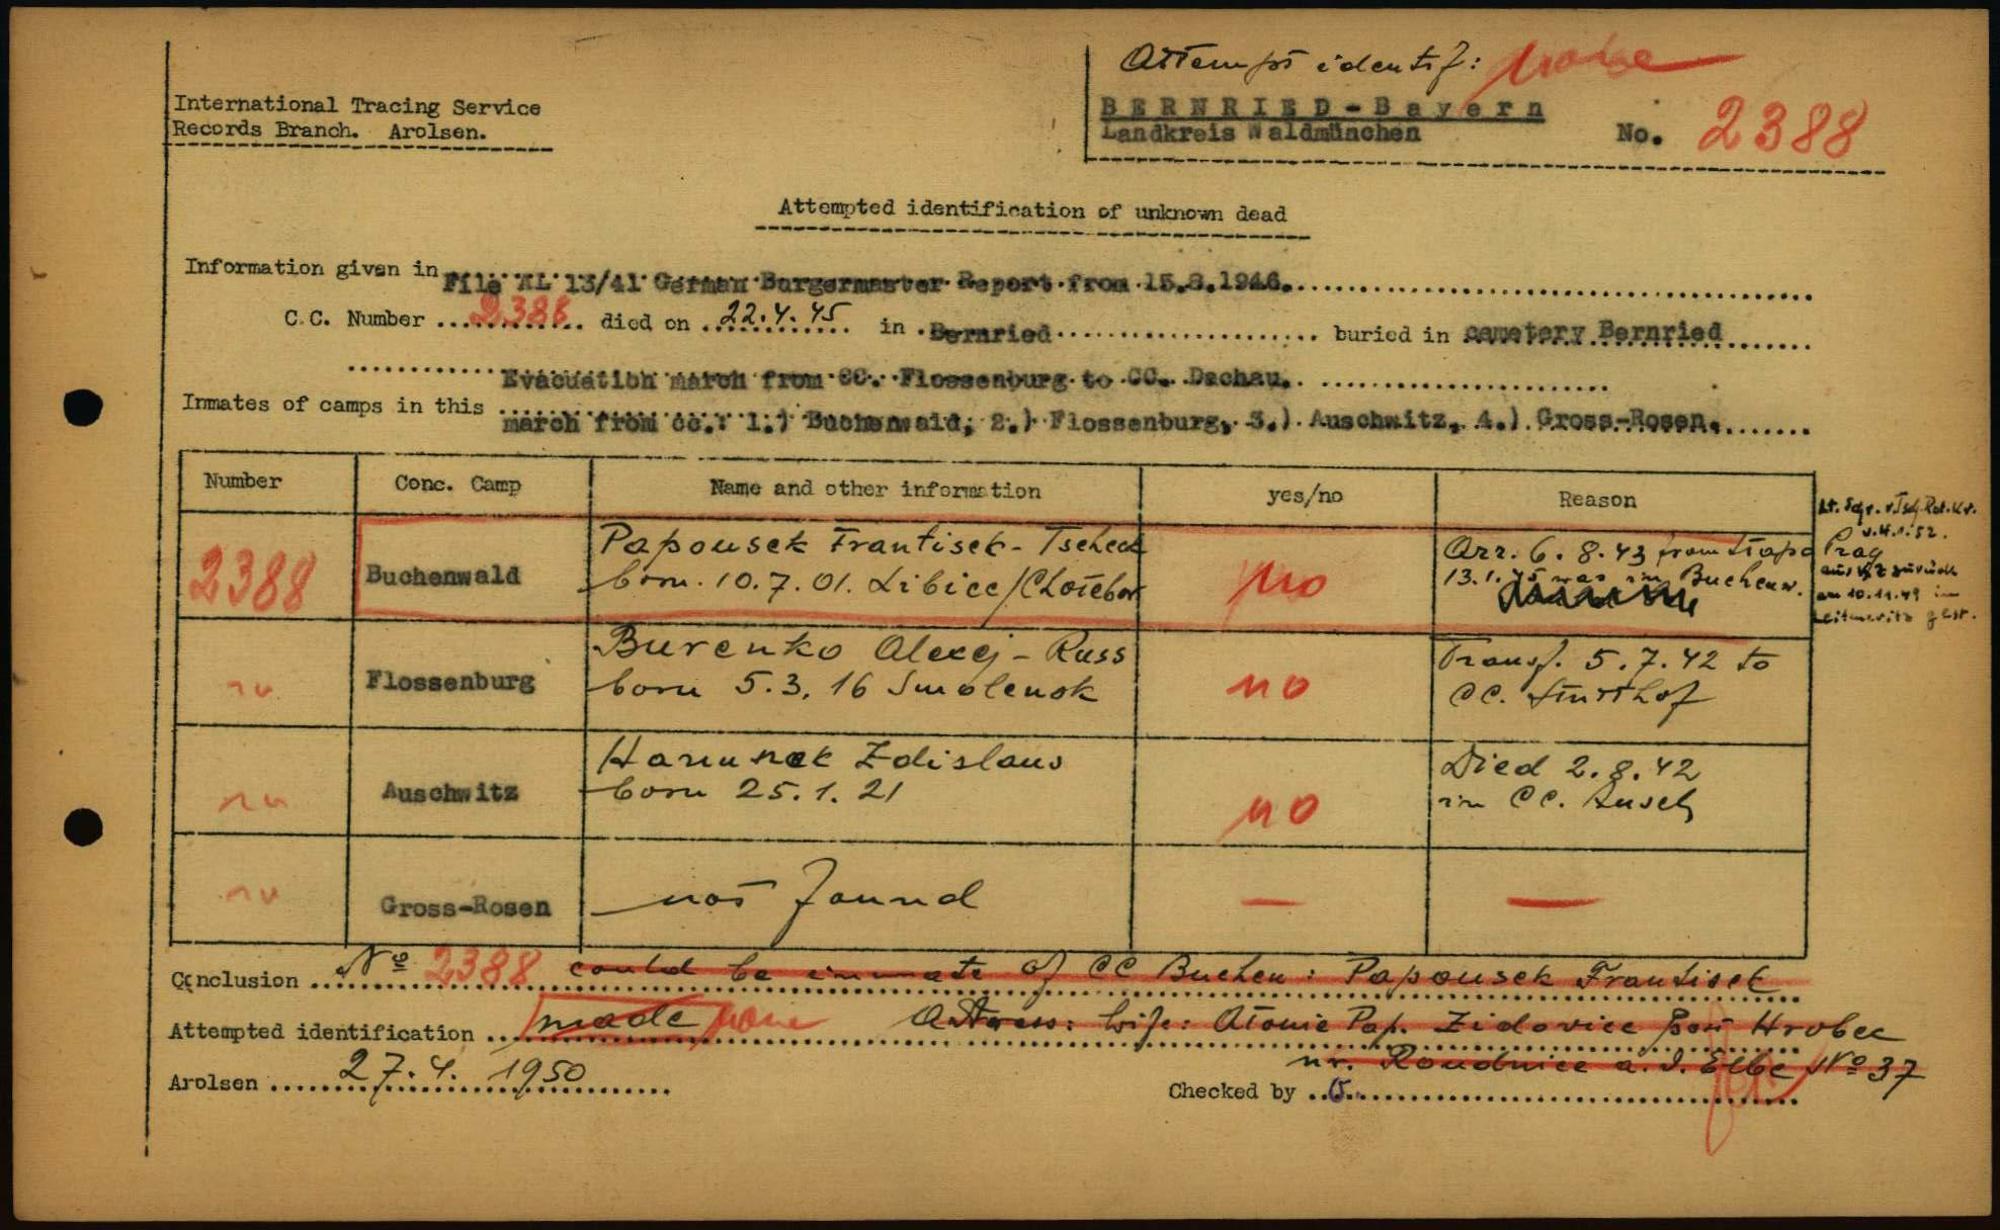 Attempt identif: none
International Tracing Service
Records Branch. Arolsen.
BERNRIED-Bayern
Landkreis Waldmünchen
No. 2388
Attempted identification of unknown dead
Information given in File KL 13/41 German Burgermaster Report from 15.8.1946.
C.C. Number 2388 died on 22.4.45 in Bernried buried in cemetery Bernried
Evacuation march from CC. Flossenburg to CC. Dachau.
Inmates of camps in this march from cc.: 1.) Buchenwald, 2.) Flossenburg, 3.) Auschwitz, 4.) Gross-Rosen.
Number Conc. Camp Name and other information yes/no Reason
2388 Buchenwald Papousek Frantisek - Tscheck
born. 10.7.01. Libice/Chotebor
no
Arr. 6.8.43 from Stapo
13.1.45 was in Buchenw.
v. 4.1.52.
Prag
aus KZ zurück
am 10.11.49 in
Leitmeritz gest.
nu Flossenburg Burenko Alexej - Russ
born 5.3.16 Smolensk
no
Transf. 5.7.42 to
CC. Stutthof
nu Auschwitz Hanusek Zdislaus
born 25.1.21
no
Died 2.8.42
in CC. Ausch
nu Gross-Rosen not found — —
Conclusion No 2388 could be inmate of CC Buchen: Papousek Frantisek
Attempted identification made none Adress: wife: Atonie Pap. Zidovice post Hrobec
nr. Roudnice a. d. Elbe No 37
Arolsen 27.4. 1950
Checked by